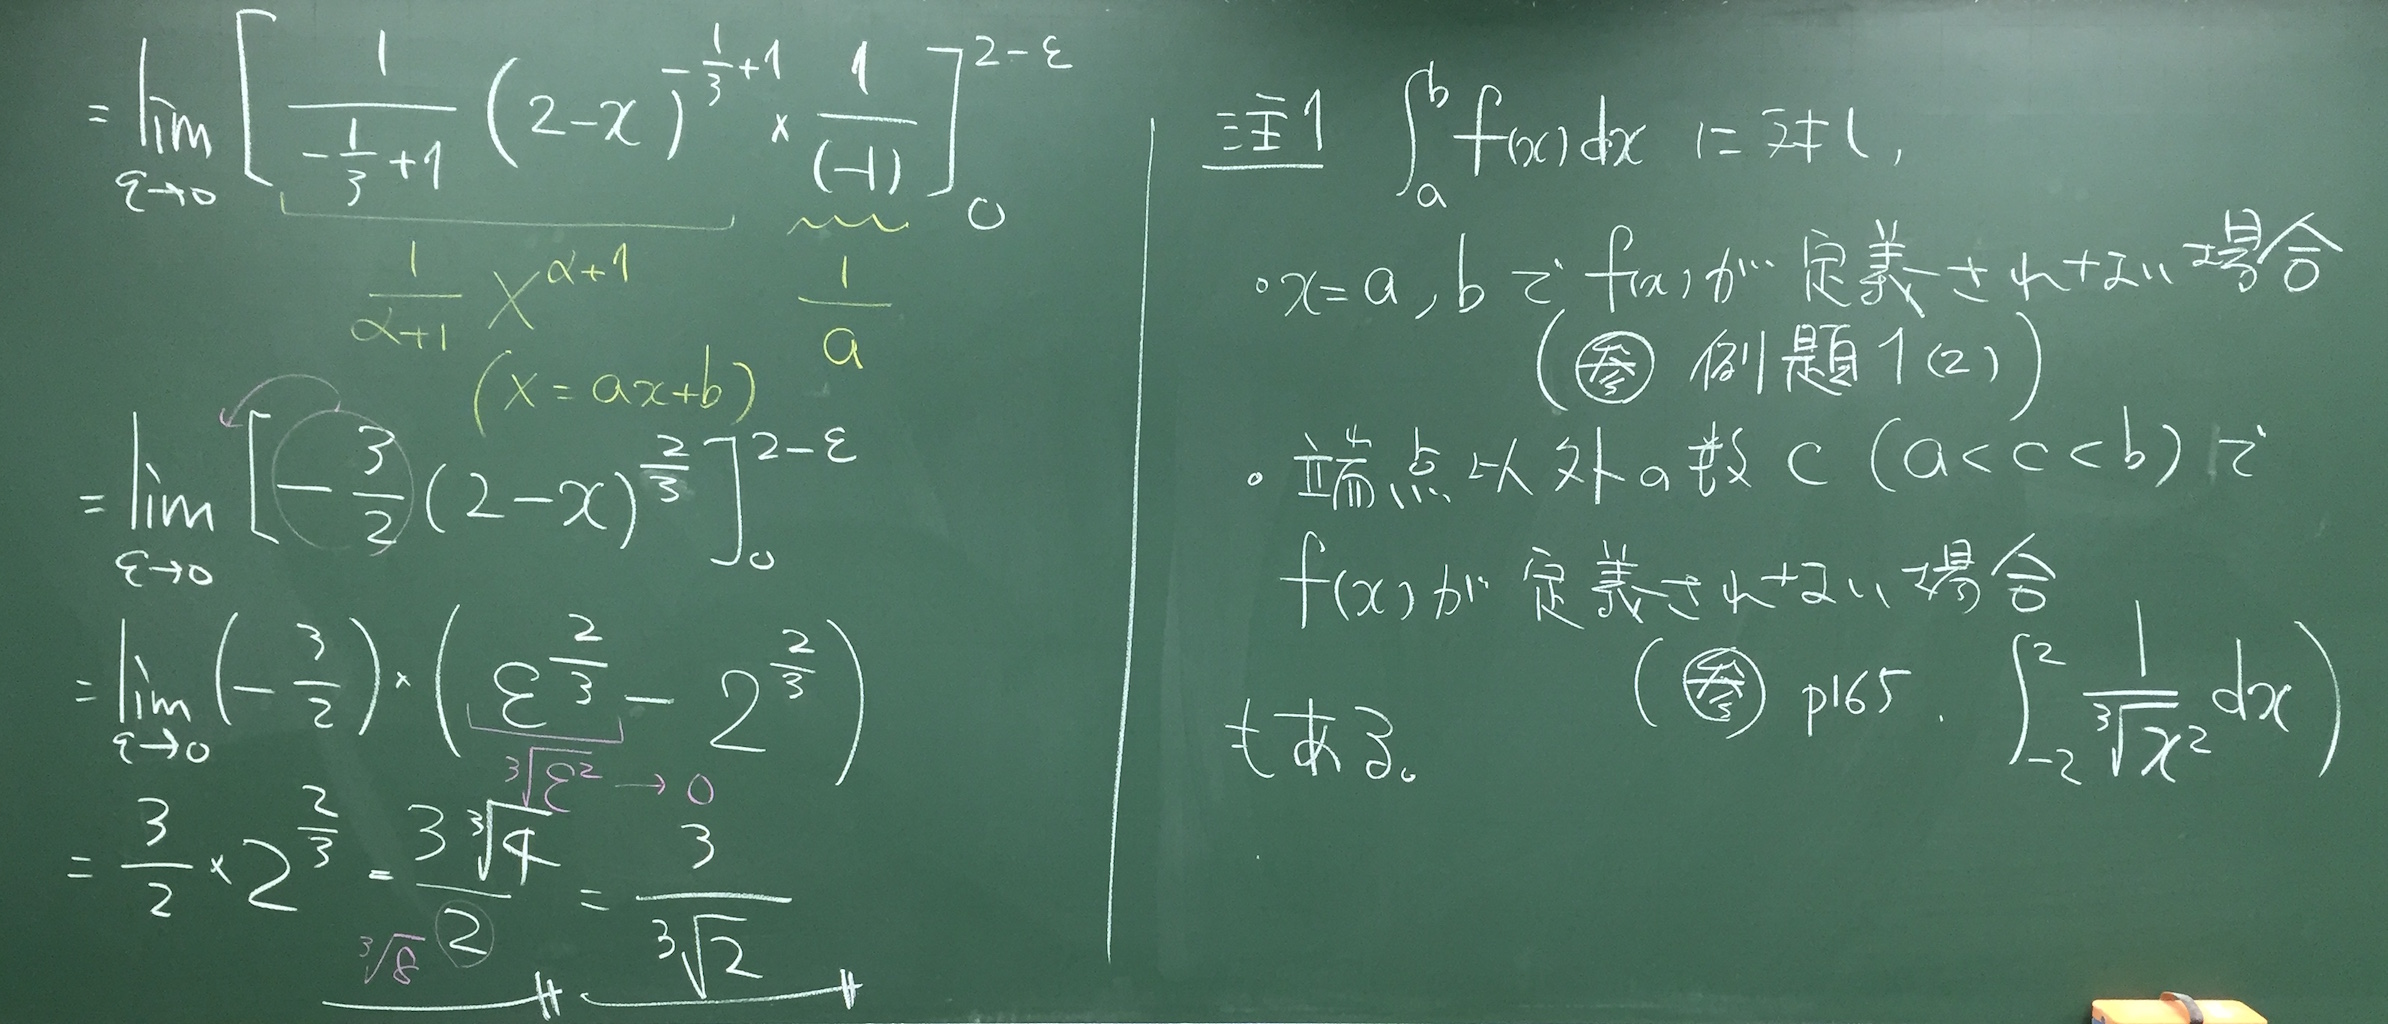 = lim_{ε→0} [ \frac{1}{-\frac{1}{3}+1} (2-x)^{-\frac{1}{3}+1} × \frac{1}{(-1)} ]_0^{2-ε}
\frac{1}{α+1} X^{α+1} \frac{1}{a}
(X = ax+b)
= lim_{ε→0} [ -\frac{3}{2} (2-x)^{\frac{2}{3}} ]_0^{2-ε}
= lim_{ε→0} (-\frac{3}{2}) × ( ε^{\frac{2}{3}} - 2^{\frac{2}{3}} )
\sqrt[3]{ε^2} → 0
= \frac{3}{2} × 2^{\frac{2}{3}} = \frac{3\sqrt[3]{4}}{2} = \frac{3}{\sqrt[3]{2}}
\sqrt[3]{8}
注1 ∫_a^b f(x)dx に対し,
・x=a,bでf(x)が定義されない場合
(参 例題1(2))
・端点以外の数c (a<c<b)で
f(x)が定義されない場合
(参 p165. ∫_{-2}^{2} \frac{1}{\sqrt[3]{x^2}} dx)
もある。